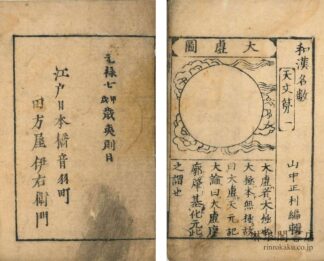 和漢名數
天文第一
山中正利編輯
大虚圖
大虚者大極也
大極本無極故
曰大虚天元記
大論曰大虚廖
廓肇基化元此
之謂也
元禄七甲戌歳夷則日
江戸日本橋音羽町
四方屋伊右衛門
rinrokaku.co.jp